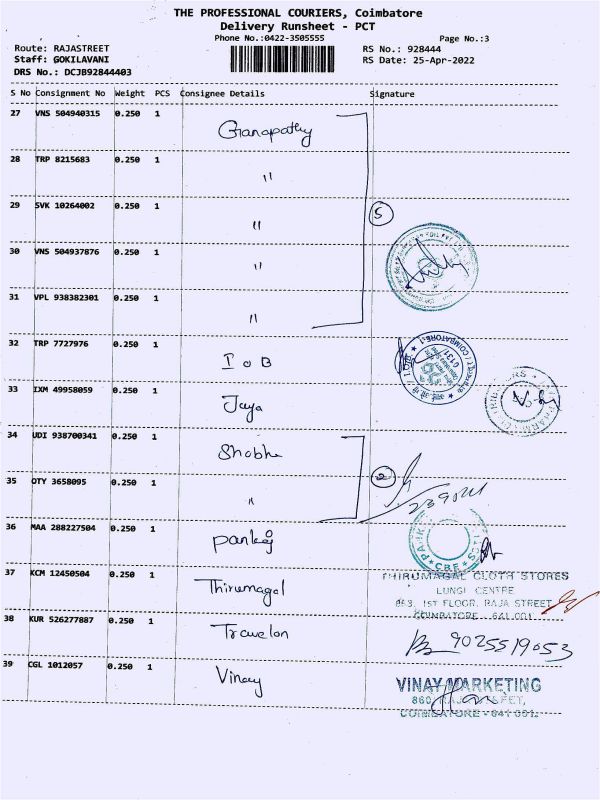 THE PROFESSIONAL COURIERS, Coimbatore
Delivery Runsheet - PCT
Phone No.:0422-3505555
Page No.:3
Route: RAJASTREET
RS No.: 928444
Staff: GOKILAVANI
RS Date: 25-Apr-2022
DRS No.: DCJB92844403
S No Consignment No Weight PCS Consignee Details Signature
27 VNS 504940315 0.250 1 Ganapathy
28 TRP 8215683 0.250 1 "
29 SVK 10264002 0.250 1 "
5
30 VNS 504937876 0.250 1 "
31 VPL 938382301 0.250 1 "
32 TRP 7727976 0.250 1 I O B
33 IXM 49958059 0.250 1 Jaya
34 UDI 938700341 0.250 1 Shobha
2
35 OTY 3658095 0.250 1 "
36 MAA 288227504 0.250 1 pankaj
CBE
37 KCM 12450504 0.250 1 Thirumagal
THIRUMAGAL CLOTH STORES
LUNGI CENTRE
1ST FLOOR, RAJA STREET
COIMBATORE - 641 001
38 KUR 526277887 0.250 1 Travelon
9025519053
39 CGL 1012057 0.250 1 Vinay
VINAY MARKETING
860, RAJA STREET,
COIMBATORE - 641 001